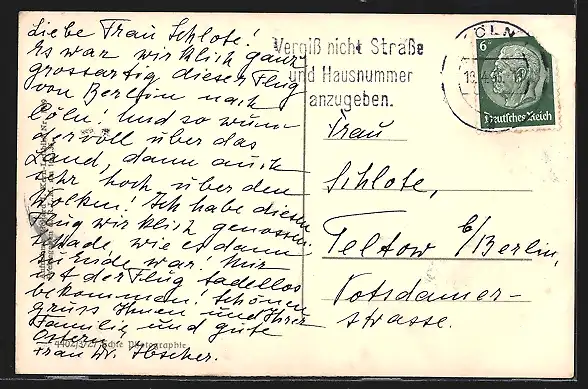 Liebe Frau Schlote!
Es war wirklich ganz
grossartig dieser Flug
von Berlin nach
Cöln! Und so wun-
dervoll über das
Land, dann auch
sehr hoch über den
Wolken! Ich habe diesen
Flug wirklich genossen
schade, wie es dann
zu Ende war. Mir
ist der Flug tadellos
bekommen! Schönen
gruss Ihnen und Ihrer
Familie und gute
Ostern
Frau Dr.
4402/372 Echte Photographie
Vergiß nicht Straße
und Hausnummer
anzugeben.
KÖLN
6
Deutsches Reich
Frau
Schlote,
Teltow b/Berlin,
Potsdamer-
strasse.